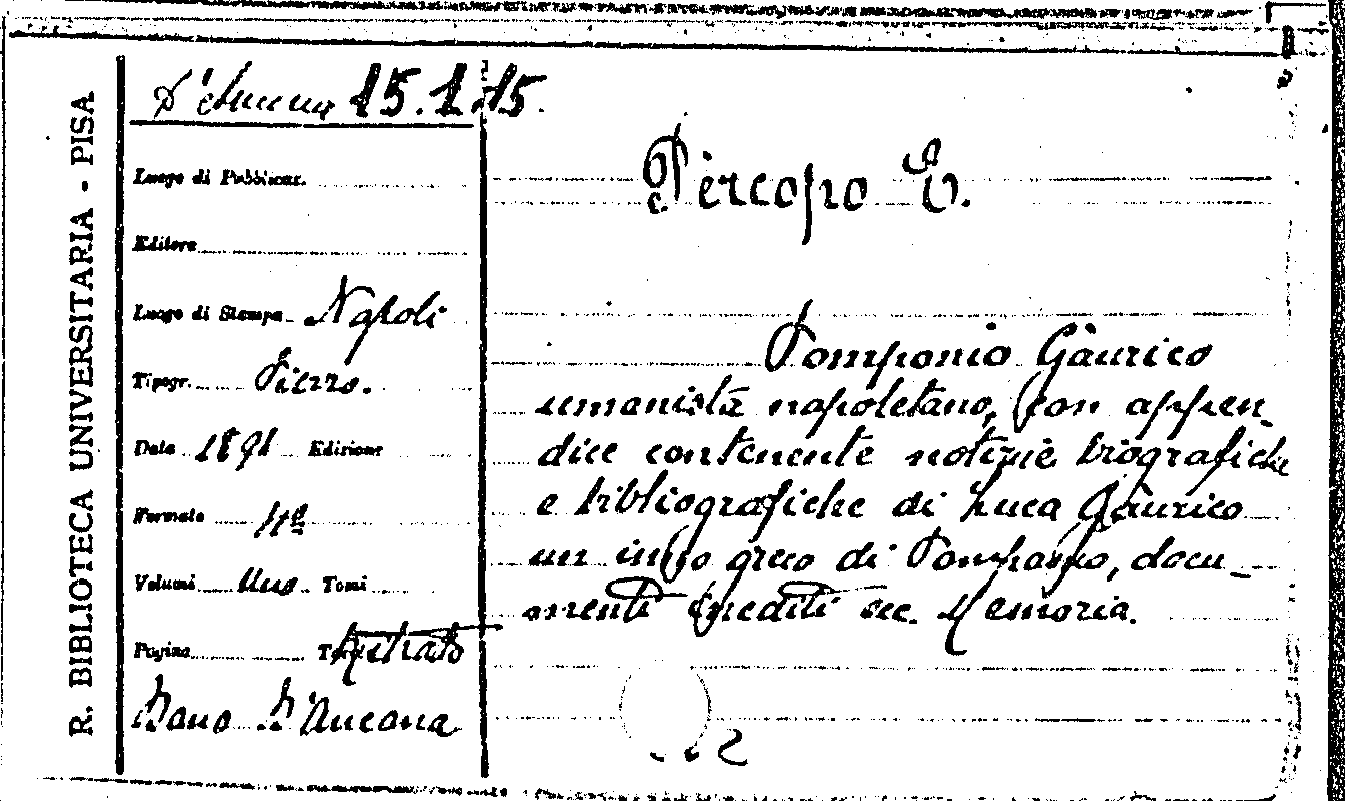 R. BIBLIOTECA UNIVERSITARIA - PISA
D'Ancona 15.1.15.
Luogo di Pubblicaz.
Editore
Luogo di Stampa Napoli
Tipogr. Pierro.
Data 1891 Edizione
Formato
Volumi Uno Tomi
Pagine Estratto
Dono D'Ancona
Pèrcopo E.
Pomponio Gàurico
umanista napoletano, con appen-
dice contenente notizie biografiche
e bibliografiche di Luca Gàurico
un inno greco di Pomponio, docu-
menti inediti ecc. Memoria.